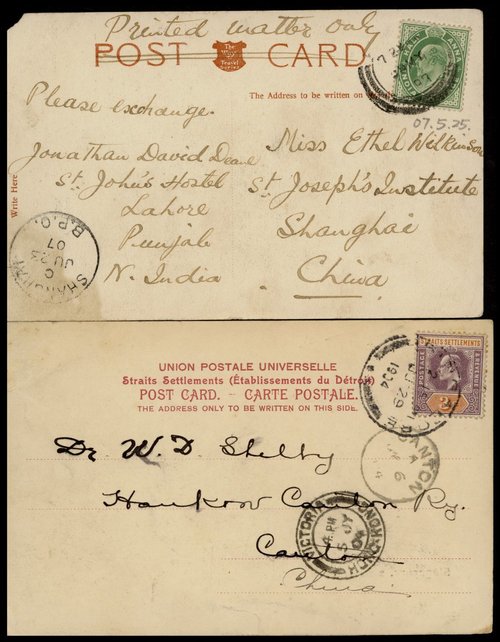 Printed matter only
POST CARD
The Address to be written on
07.5.25.
Please exchange.
Jonathan David Deane
St. John's Hostel
Lahore
Punjab
N. India
Write Here
SHANGHAI
C
JU 23
07
B.P.O.
Miss Ethel Wilkinson
St. Joseph's Institute
Shanghai
China
UNION POSTALE UNIVERSELLE
Straits Settlements (Établissements du Détroit)
POST CARD. – CARTE POSTALE.
THE ADDRESS ONLY TO BE WRITTEN ON THIS SIDE.
STRAITS SETTLEMENTS
POSTAGE
29
1904
Dr. W. D. Shelby
Hankow Canton Ry.
Canton
China
CANTON
A
6
4
VICTORIA HONG-KONG
4. PM
5 JY
04